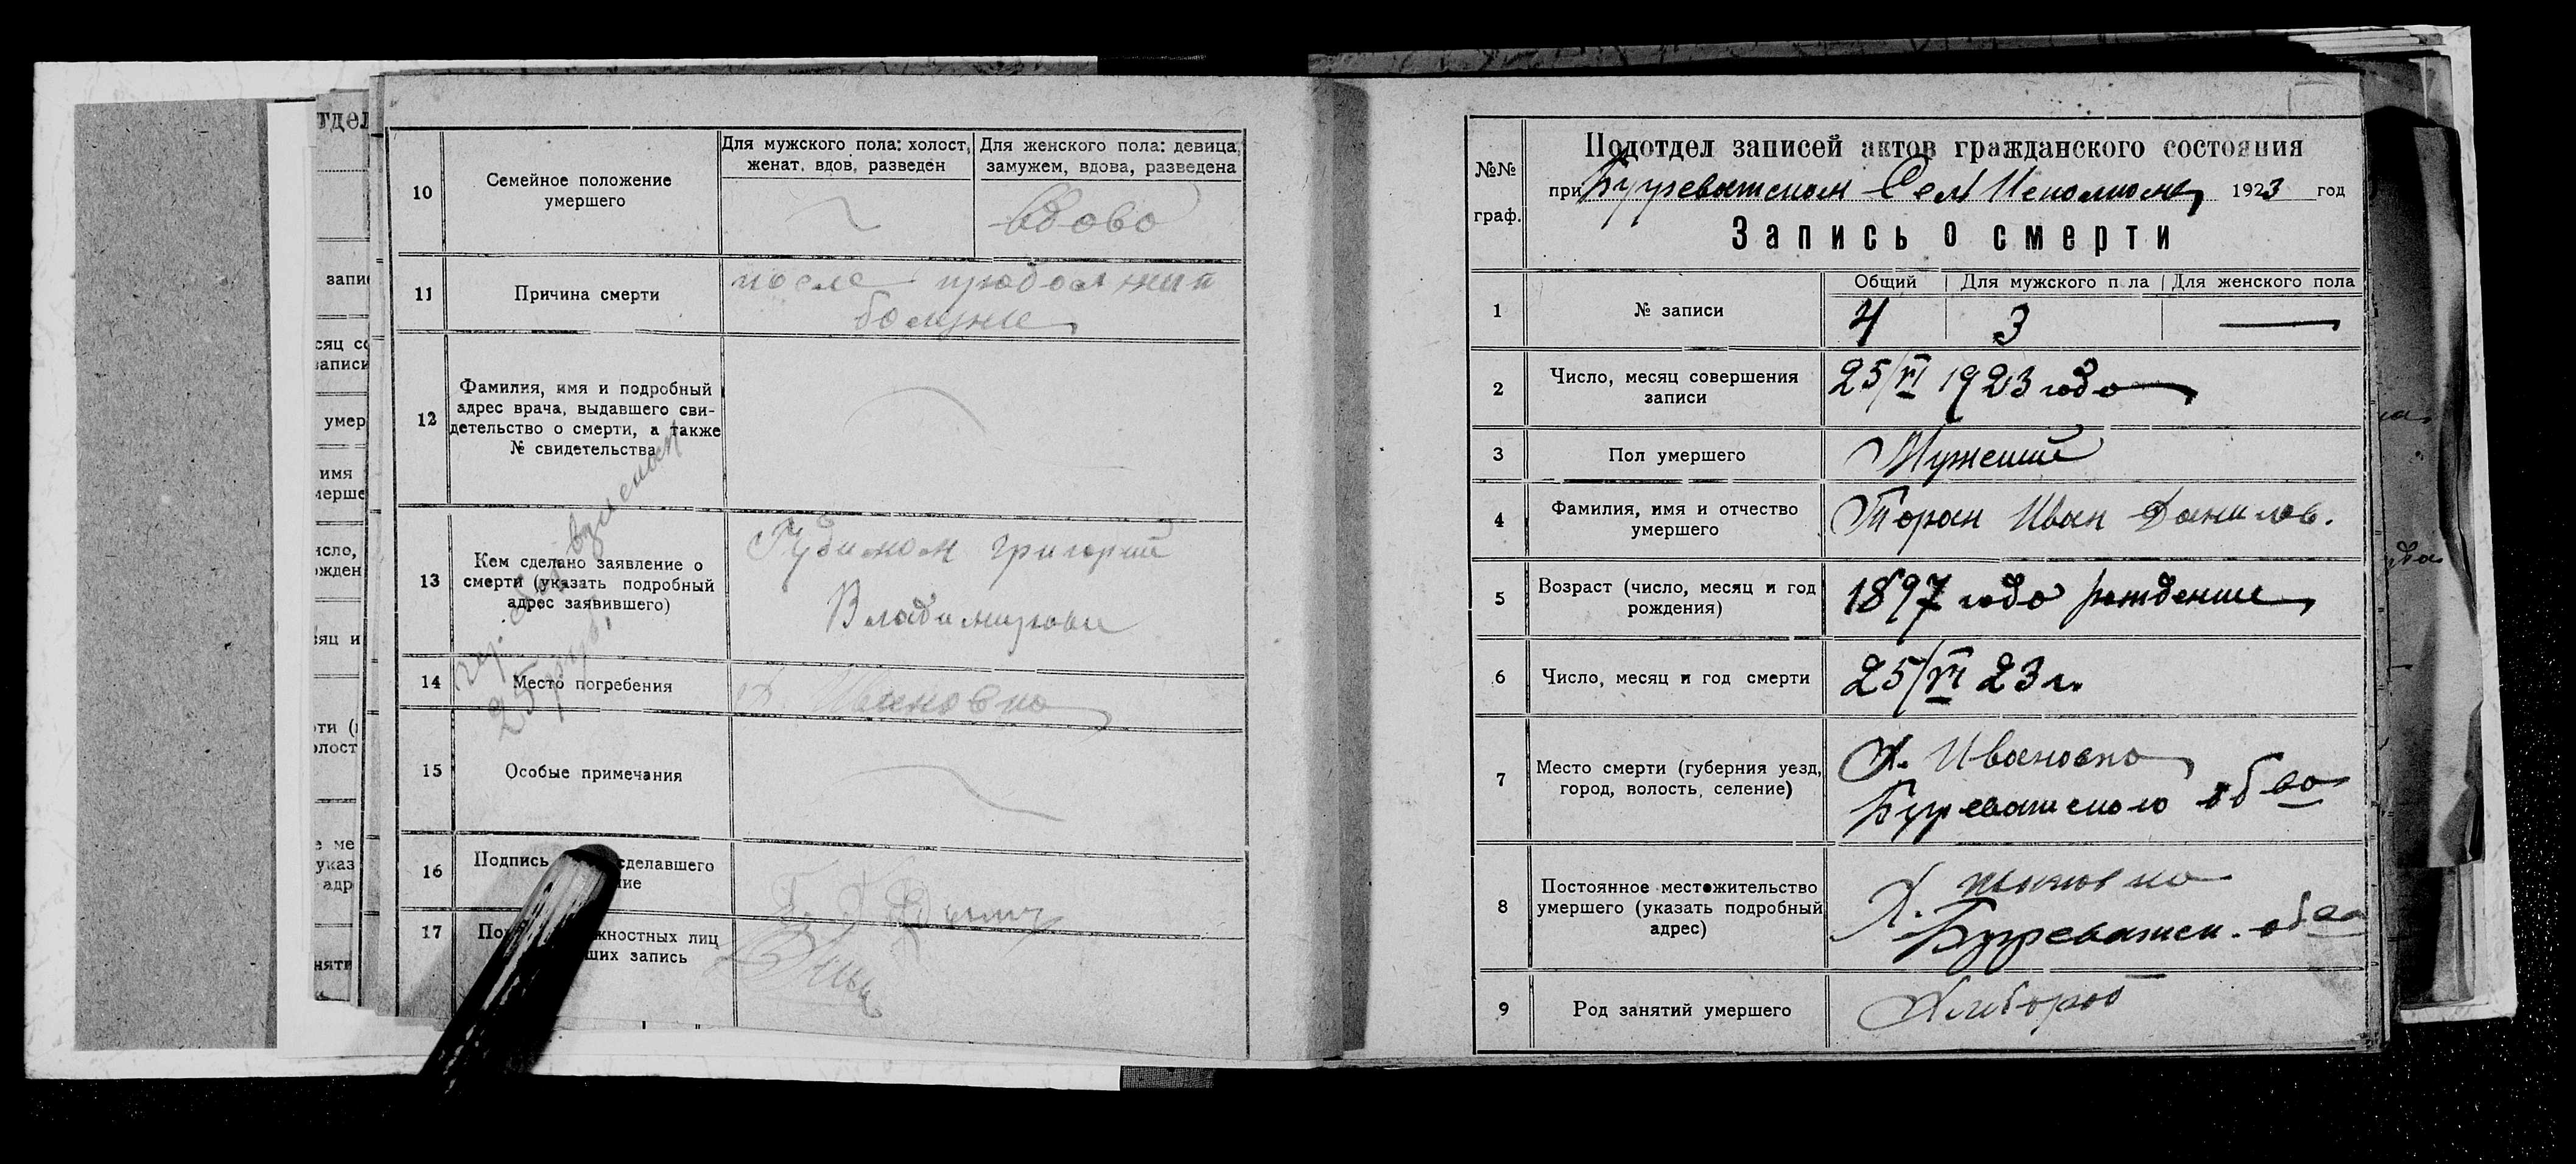 10
Семейное положение
умершего
Для мужского пола: холост,
женат, вдов, разведен
Для женского пола: девица,
замужем, вдова, разведена
вдова
11
Причина смерти
после продолжит
болезне
12
Фамилия, имя и подробный
адрес врача, выдавшего сви-
детельство о смерти, а также
№ свидетельства
13
Кем сделано заявление о
смерти (указать подробный
адрес заявившего)
Григорий
Владимирови
14
Место погребения
Ивановка
15
Особые примечания
16
Подпись сделавшего
17
жностных лиц
ших запись
взыскан
25 руб.
№№
граф.
Подотдел записей актов гражданского состояния
при Буреватском Сел Исполкоме 1923 год
Запись о смерти
1
№ записи
Общий
Для мужского п ла
Для женского пола
4
3
2
Число, месяц совершения
записи
25/VI 1923 года
3
Пол умершего
Мужский
4
Фамилия, имя и отчество
умершего
Торан Иван Данилов.
5
Возраст (число, месяц и год
рождения)
1897 года рождение
6
Число, месяц и год смерти
25/VI 23 г.
7
Место смерти (губерния уезд,
город, волость, селение)
Х. Ивановка
Буреватского об ва
8
Постоянное местожительство
умершего (указать подробный
адрес)
Х.
Буреватск. об ва
9
Род занятий умершего
Хлибороб